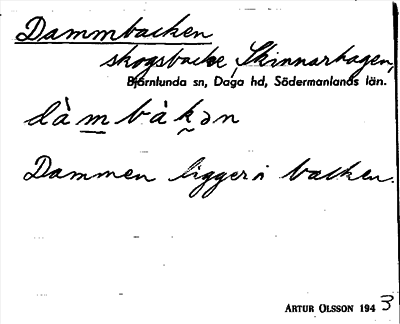 Dammbacken
skogsbacke, Skinnarhagen,
Björnlunda sn, Daga hd, Södermanlands län.
dàmbàkən
Dammen ligger i backen.
ARTUR OLSSON 1943